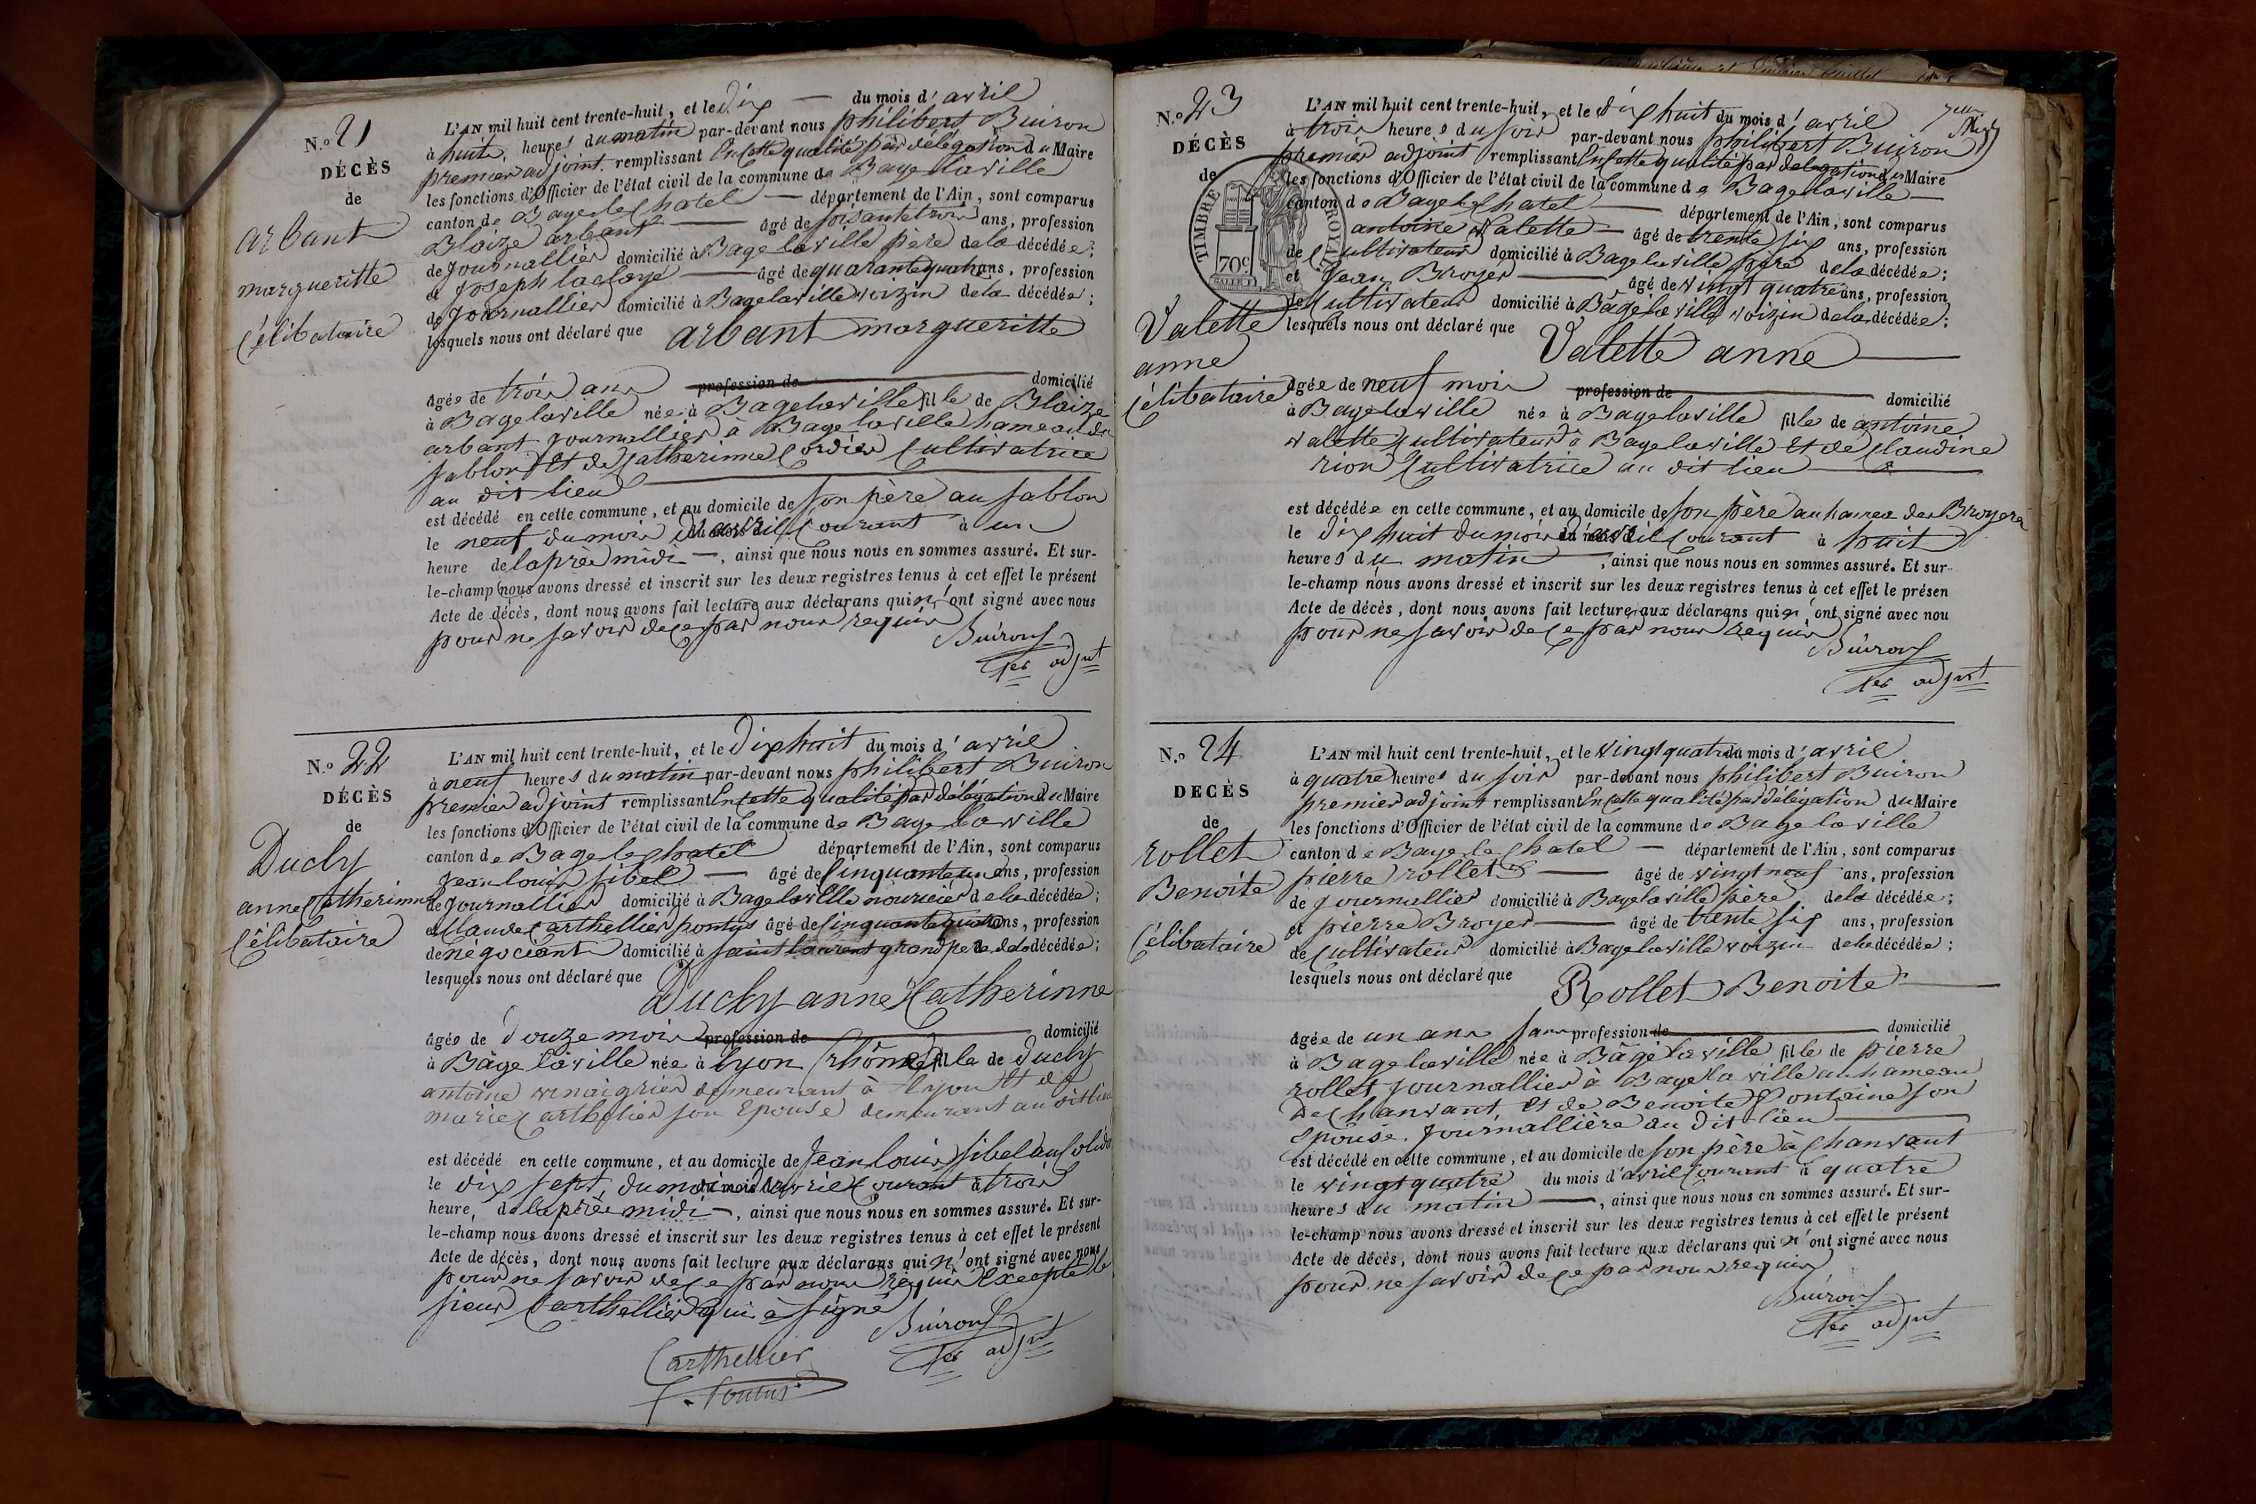 N.o 21
DÉCÈS
de
arbant
margueritte
Célibataire
L'AN mil huit cent trente-huit, et le dix du mois d'avril
à huit heures du matin par-devant nous philibert Buiron
premier adjoint remplissant En Cette qualité par délégation du Maire
les fonctions d'Officier de l'état civil de la commune de Bage laville
canton de Bage le Chatel département de l'Ain, sont comparus
Blaize arbant âgé de soisante trois ans, profession
de Journallier domicilié à Bage laville père de la décédée;
et Joseph laclaye âgé de quarante quatre ans, profession
de Journallier domicilié à Bage laville voizin de la décédée;
lesquels nous ont déclaré que arbant margueritte
âgée de trois ans profession de domicilié
à Bage laville née à Bage laville fille de Blaize
arbant Journallier à Bage laville hameau du
sablon Et de Catherinne Cordier Cultivatrice
au dit lieu
est décédé en cette commune, et au domicile de son père au sablon
le neuf du mois d'avril Courant à une
heure de laprès midi, ainsi que nous nous en sommes assuré. Et sur-
le-champ nous avons dressé et inscrit sur les deux registres tenus à cet effet le présent
Acte de décès, dont nous avons fait lecture aux déclarans qui n'ont signé avec nous
pour ne savoir de ce par nous requis
Buiron
1er adjnt
N.o 22
DÉCÈS
de
Duchy
anne Catherinne
Célibataire
L'AN mil huit cent trente-huit, et le Dix huit du mois d'avril
à neuf heures du matin par-devant nous philibert Buiron
premier adjoint remplissant En Cette qualité par délégation du Maire
les fonctions d'Officier de l'état civil de la commune de Bage laville
canton de Bage le Chatel département de l'Ain, sont comparus
Jean louis sibel âgé de Cinquante un ans, profession
de Journallier domicilié à Bage laville nouricier de la décédée;
et Claude Carthellier pontus âgé de Cinquante quatre ans, profession
de négociant domicilié à saint laurent grand père de la décédée;
lesquels nous ont déclaré que Duchy anne Catherinne
âgée de Douze mois profession de domicilié
à Bâgé laville née à lyon (rhône) fille de Duchy
antoine vinaigrier demeurant à lyon Et de
marie Carthelier son Epouse demeurant au dit lieu
est décédé en cette commune, et au domicile de Jean louis sibel
le Dix sept du mois d'avril Courant à trois
heure de laprès midi, ainsi que nous nous en sommes assuré. Et sur-
le-champ nous avons dressé et inscrit sur les deux registres tenus à cet effet le présent
Acte de décès, dont nous avons fait lecture aux déclarans qui n'ont signé avec nous
pour ne savoir de ce par nous requis Excepté le
sieur Carthellier qui a signé
Buiron
1er adjnt
Carthellier
Pontus
N.o 23
DÉCÈS
de
Valette
anne
Célibataire
TIMBRE ROYAL
70c
L'AN mil huit cent trente-huit, et le dix huit du mois d'avril
à trois heures du soir par-devant nous philibert Buiron
premier adjoint remplissant En Cette qualité par délégation du Maire
les fonctions d'Officier de l'état civil de la commune de Bage laville
canton de Bage le Chatel département de l'Ain, sont comparus
antoine Valette âgé de trente six ans, profession
de Cultivateur domicilié à Bage laville père de la décédée;
et Jean Broyer âgé de vingt quatre ans, profession
de Cultivateur domicilié à Bâgé laville voizin de la décédée;
lesquels nous ont déclaré que Valette anne
âgée de neuf mois profession de domicilié
à Bage laville née à Bage laville fille de antoine
valette Cultivateur à Bage laville Et de Claudine
rion Cultivatrice au dit lieu
est décédée en cette commune, et au domicile de son père au hameau des Broyers
le Dix huit du mois d'avril Courant à huit
heures du matin, ainsi que nous nous en sommes assuré. Et sur-
le-champ nous avons dressé et inscrit sur les deux registres tenus à cet effet le présen
Acte de décès, dont nous avons fait lecture aux déclarans qui n'ont signé avec nou
pour ne savoir de ce par nous requis
Buiron
1er adjnt
N.o 24
DÉCÈS
de
rollet
Benoite
Célibataire
L'AN mil huit cent trente-huit, et le vingt quatre du mois d'avril
à quatre heures du soir par-devant nous philibert Buiron
premier adjoint remplissant En Cette qualité par délégation du Maire
les fonctions d'Officier de l'état civil de la commune de Bage laville
canton de Bage le Chatel département de l'Ain, sont comparus
pierre rollet âgé de vingt neuf ans, profession
de Journallier domicilié à Bage laville père de la décédée;
et pierre Broyer âgé de trente six ans, profession
de Cultivateur domicilié à Bage laville voizin de la décédée;
lesquels nous ont déclaré que Rollet Benoite
âgée de un ans sans profession de domicilié
à Bage laville née à Bâgé laville fille de pierre
rollet Journallier à Bage la ville au hameau
De Chanvant, Et de Benoite Pontaine son
Epouse Journallière au dit lieu
est décédé en cette commune, et au domicile de son père à Chanvant
le vingt quatre du mois d'avril Courant à quatre
heures du matin, ainsi que nous nous en sommes assuré. Et sur-
le-champ nous avons dressé et inscrit sur les deux registres tenus à cet effet le présent
Acte de décès, dont nous avons fait lecture aux déclarans qui n'ont signé avec nous
pour ne savoir de ce par nous requis
Buiron
1er adjnt